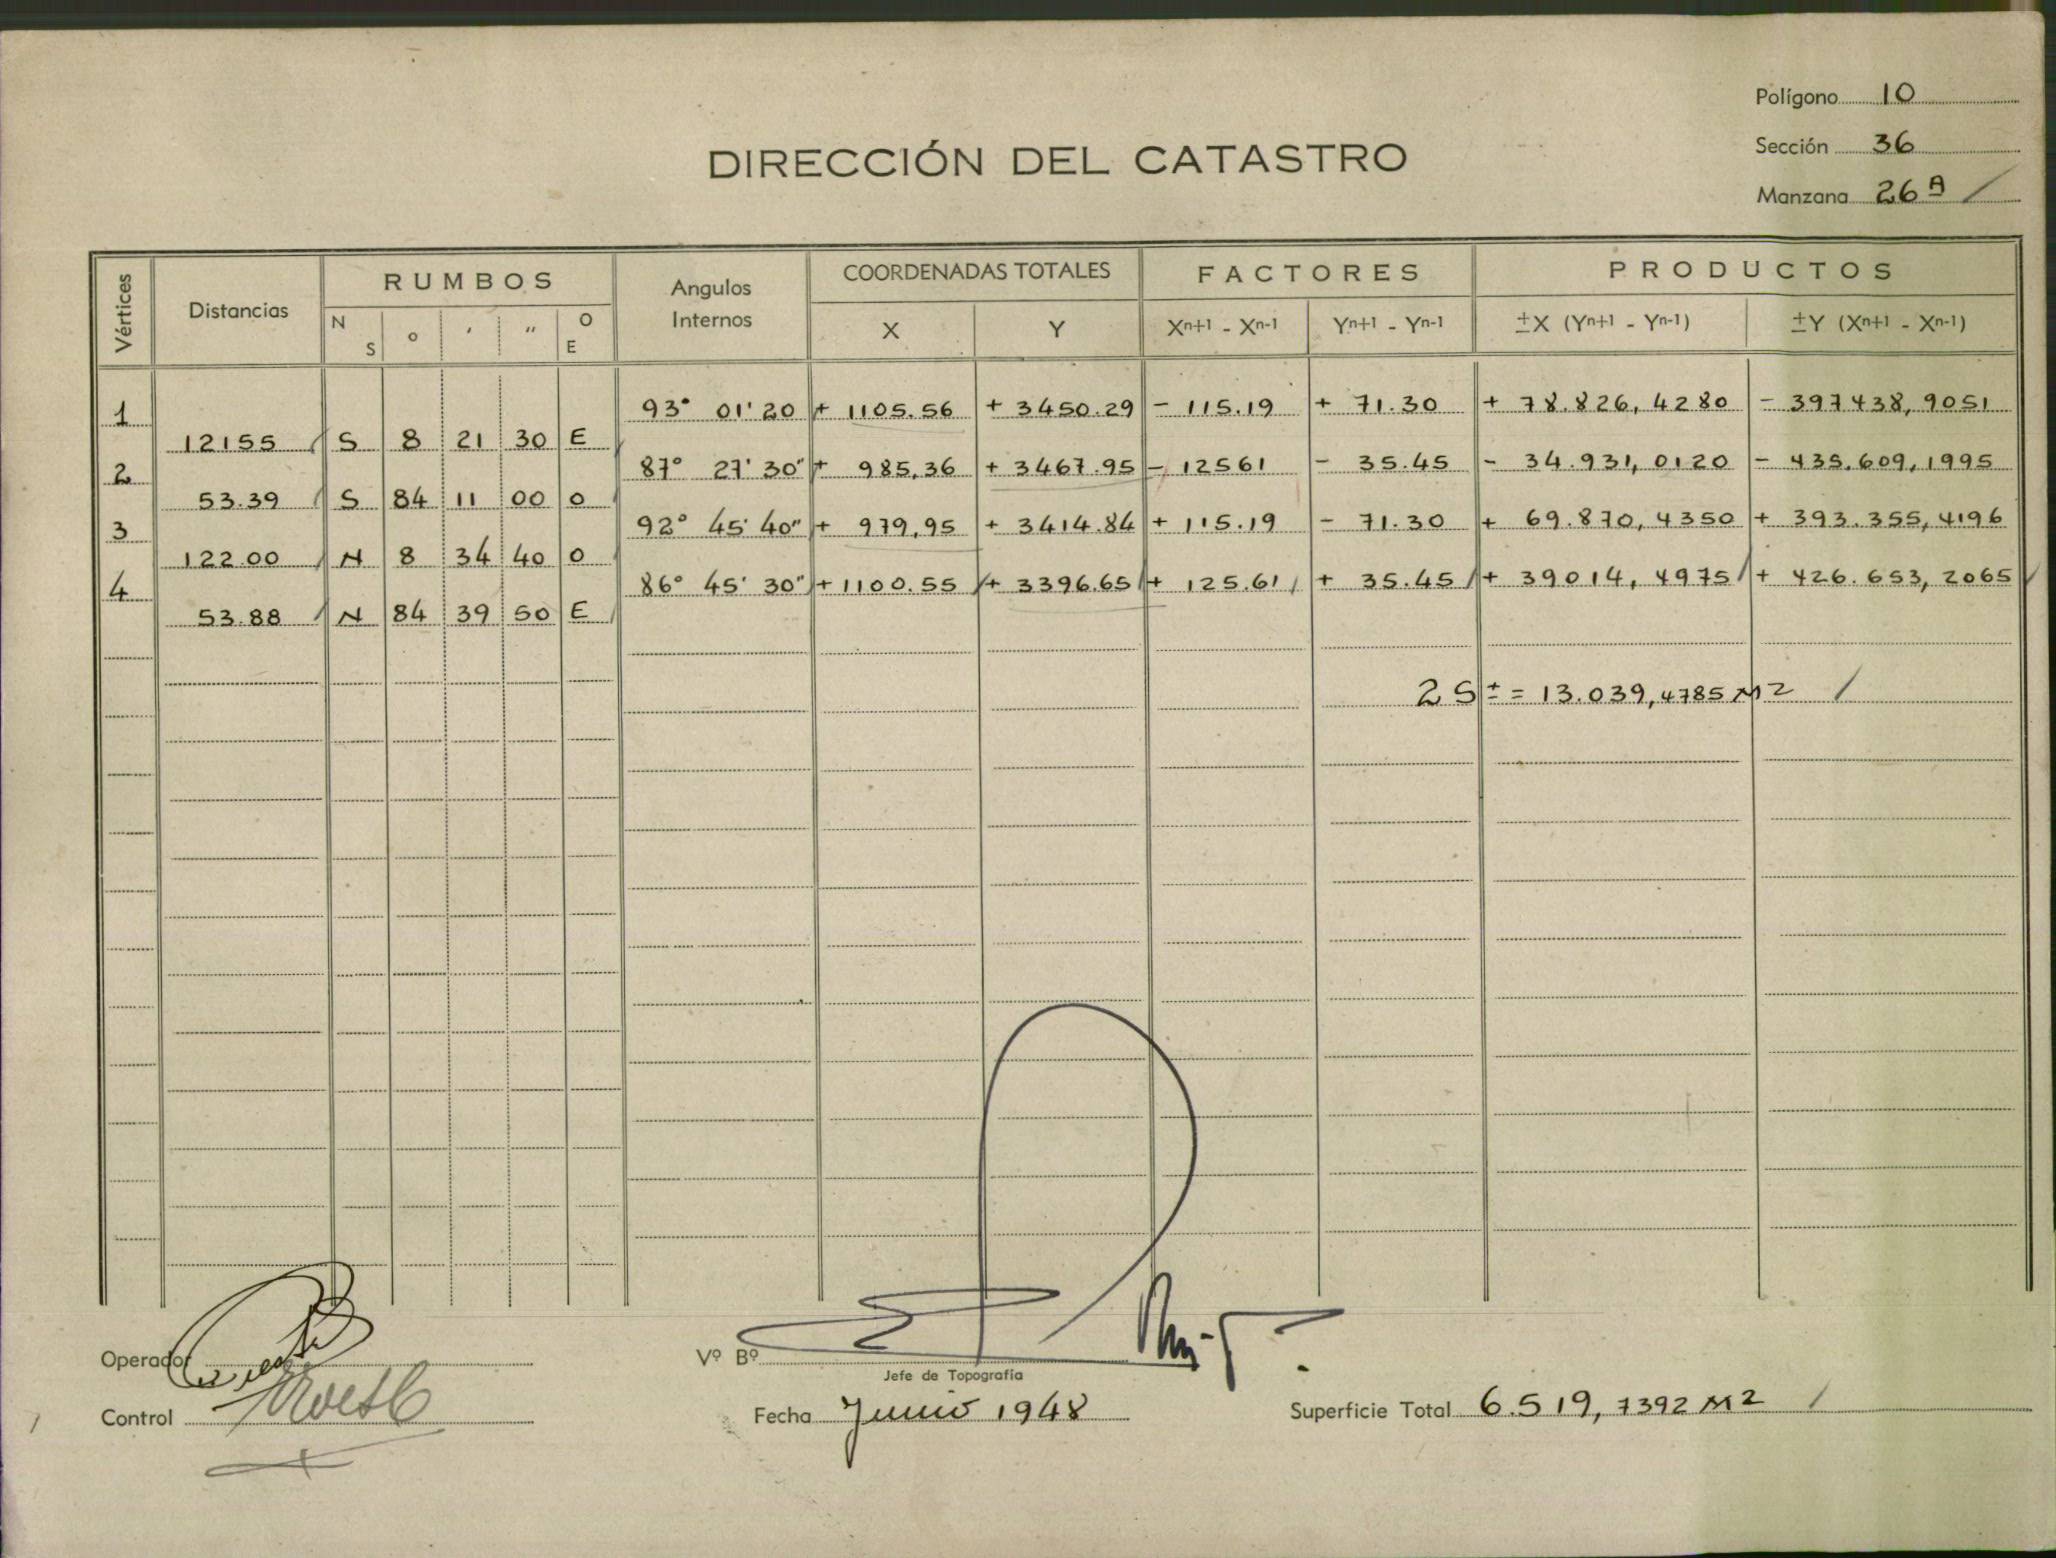 Polígono 10
DIRECCIÓN DEL CATASTRO
Sección 36
Manzana 26 A
Vértices Distancias RUMBOS Angulos Internos COORDENADAS TOTALES FACTORES PRODUCTOS
N S o ' " O E X Y Xn+1 - Xn-1 Yn+1 - Yn-1 ±X (Yn+1 - Yn-1) ±Y (Xn+1 - Xn-1)
1 93° 01' 20 + 1105.56 + 3450.29 - 115.19 + 71.30 + 78.826,4280 - 397438,9051
12155 S 8 21 30 E
2 87° 27' 30" + 985,36 + 3467.95 - 12561 - 35.45 - 34.931,0120 - 435.609,1995
53.39 S 84 11 00 O
3 92° 45' 40" + 979,95 + 3414.84 + 115.19 - 71.30 + 69.870,4350 + 393.355,4196
122.00 N 8 34 40 O
4 86° 45' 30" + 1100.55 + 3396.65 + 125.61 + 35.45 + 39014,4975 + 426.653,2065
53.88 N 84 39 50 E
2 S ± = 13.039,4785 M2
Operador
Vº Bº
Jefe de Topografía
Control
Fecha Junio 1948
Superficie Total 6.519,7392 M2